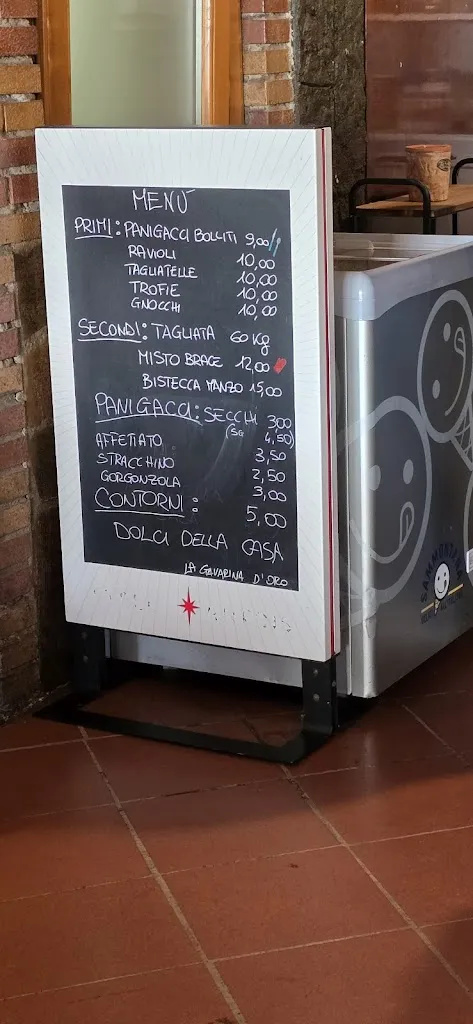 MENÙ
PRIMI: PANIGACCI BOLLITI 9,00
RAVIOLI 10,00
TAGLIATELLE 10,00
TROFIE 10,00
GNOCCHI 10,00
SECONDI: TAGLIATA 60 Kg
MISTO BRACE 12,00
BISTECCA MANZO 15,00
PANIGACCI: SECCHI 300
(SG 4,50)
AFFETTATO 3,50
STRACCHINO 2,50
GORGONZOLA 3,00
CONTORNI: 5,00
DOLCI DELLA CASA
LA GAVARINA D'ORO
SAMMONTANA